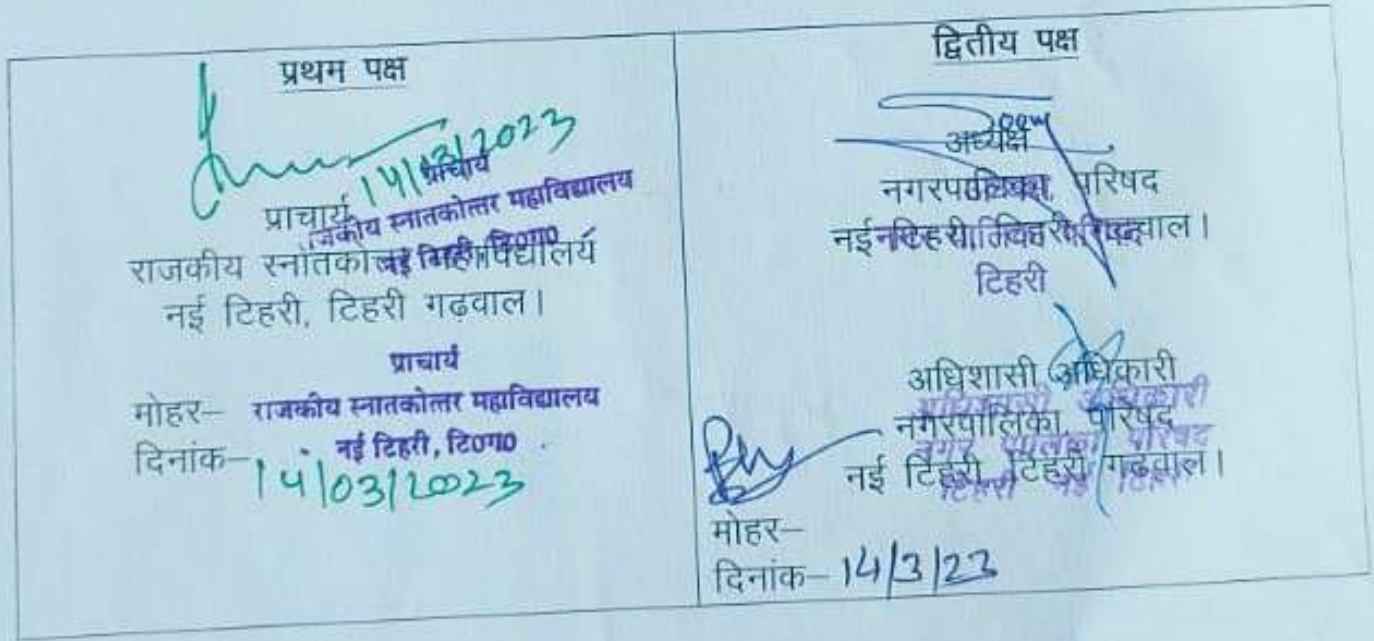 प्रथम पक्ष
14/03/2023
प्राचार्य
प्राचार्य
राजकीय स्नातकोत्तर महाविद्यालय
नई टिहरी, टि०ग०
राजकीय स्नातकोत्तर महाविद्यालय
नई टिहरी, टिहरी गढवाल।
प्राचार्य
मोहर– राजकीय स्नातकोत्तर महाविद्यालय
नई टिहरी, टि०ग०
दिनांक– 14/03/2023
द्वितीय पक्ष
अध्यक्ष
नगरपालिका, परिषद
नई टिहरी, टिहरी गढवाल।
टिहरी
अधिशासी अधिकारी
नगरपालिका, परिषद
नई टिहरी, टिहरी गढवाल।
मोहर–
दिनांक– 14/3/23